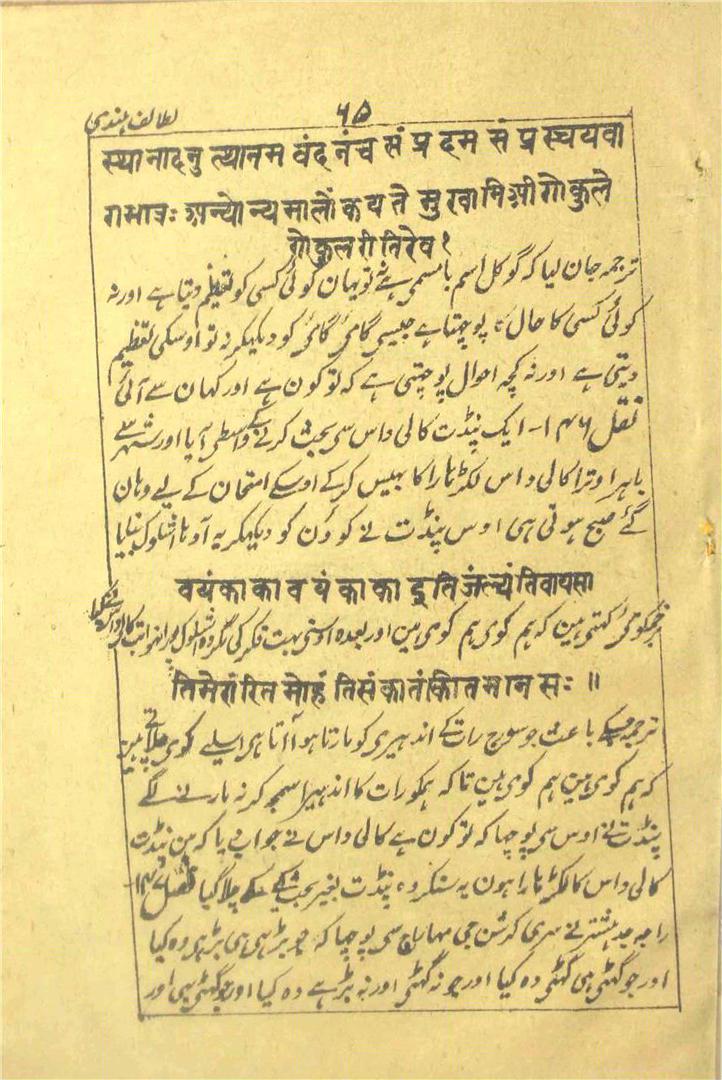 لطائف ہندی
۶۵
स्थानादनु त्थानम वंदनंच संप्रदम संप्रस्चयवा
गभावः अन्योन्यमालोकयते मुखामिश्रीगोकुले
गोकुलरीतिरेव १
ترجمہ جان لیا کہ گوکل اسم با مسمی ہے نہ تو یہان کوئی کسی کو تعظیم دیتا ہے اور نہ
کوئی کسی کا حال پوچھتا ہے جیسی گائی گائی کو دیکہکر نہ تو اوسکی تعظیم
دیتی ہے اور نہ کچہ احوال پوچہتی ہے کہ تو کون ہے اور کہان سے آئی
نقل ۱۴۶- ایک پنڈت کالی داس سی بحث کرنے کے واسطی آیا اور شہر سے
باہر اوترا کالی داس لکڑہارا کا بہیس کرکے اوسکے امتحان کے لیے وہان
گئے صبح ہوتی ہی اوس پنڈت نے کوؤن کو دیکہکر یہ آدہا اشلوک بنایا
वयंकाका वयंकाका दुतिजंल्यंतिवायसा
کہتی ہین کہ ہم کوی ہم کوی ہین اور بعدہ اوسنی بہت فکر کی مگر وہ اشلوک پورا نہوا تب کالی داس نے کہا
तिमेरारित मोहं तिसंकातंकीतमानसः ॥
ترجمہ جسکے باعث جو سورج رات کے اندہیری کو مارتا ہوا آتا ہی اسلیے کوی چلاتے ہین
کہ ہم کوی ہین ہم کوی ہین تاکہ ہمکو رات کا اندہیرا سمجہ کر نہ مارنے لگے
پنڈت نے اوس سی پوچہا کہ تو کون ہے کالی داس نے جواب دیا کہ مین پنڈت
کالی داس کا لکڑہارا ہون یہ سنکر وہ پنڈت بغیر بحث کیے چلا گیا نقل ۱۴۷-
راجہ جدہشتر نے سری کرشن جی مہاراج سی پوچہا کہ جو بڑہی ہی بڑہی وہ کیا
اور جو گہٹی ہی گہٹی وہ کیا اور جو نہ گہٹی اور نہ بڑہے وہ کیا اور جو گہٹی بہی اور